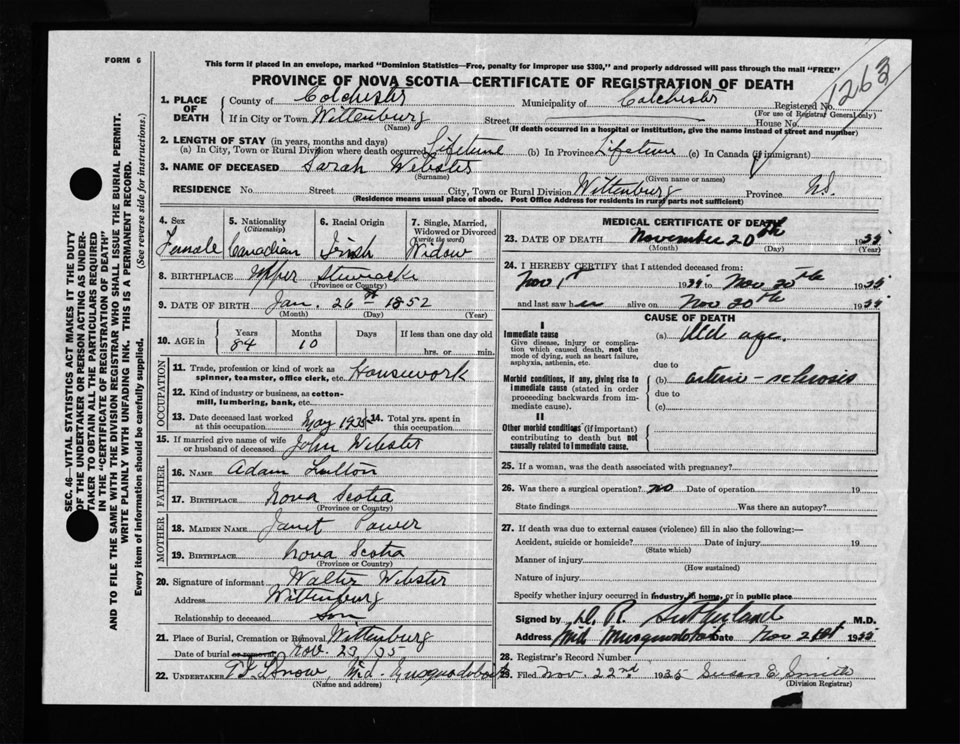 FORM 6
This form if placed in an envelope, marked "Dominion Statistics—Free, penalty for improper use $300," and properly addressed will pass through the mail "FREE"
1263
PROVINCE OF NOVA SCOTIA—CERTIFICATE OF REGISTRATION OF DEATH
1. PLACE OF DEATH
County of Colchester Municipality of Colchester Registered No.
(For use of Registrar General only)
If in City or Town Wittenburg Street House No.
(Name) (If death occurred in a hospital or institution, give the name instead of street and number)
2. LENGTH OF STAY (in years, months and days)
(a) In City, Town or Rural Division where death occurred Lifetime (b) In Province Lifetime (c) In Canada (if immigrant)
3. NAME OF DECEASED Sarah Webster
(Surname) (Given name or names)
RESIDENCE No. Street City, Town or Rural Division Wittenburg Province N.S.
(Residence means usual place of abode. Post Office Address for residents in rural parts not sufficient)
4. Sex 5. Nationality (Citizenship) 6. Racial Origin 7. Single, Married, Widowed or Divorced (write the word)
Female Canadian Irish Widow
8. BIRTHPLACE Upper Stewiacke
(Province or County)
9. DATE OF BIRTH Jan. 26 1852
(Month) (Day) (Year)
10. AGE in Years Months Days If less than one day old
84 10 hrs. or min.
OCCUPATION
11. Trade, profession or kind of work as spinner, teamster, office clerk, etc. Housework
12. Kind of industry or business, as cotton-mill, lumbering, bank, etc.
13. Date deceased last worked at this occupation May 1935 14. Total yrs. spent in this occupation
15. If married give name of wife or husband of deceased John Webster
FATHER
16. NAME Adam
17. BIRTHPLACE Nova Scotia
(Province or Country)
MOTHER
18. MAIDEN NAME Janet Power
19. BIRTHPLACE Nova Scotia
(Province or Country)
20. Signature of informant Walter Webster
Address Wittenburg
Relationship to deceased Son
21. Place of Burial, Cremation or Removal Wittenburg
Date of burial or removal Nov. 23/35
22. UNDERTAKER Mid. Musquodoboit
(Name and address)
MEDICAL CERTIFICATE OF DEATH
23. DATE OF DEATH November 20th 1935
(Month) (Day) (Year)
24. I HEREBY CERTIFY that I attended deceased from:
Nov 1st 1935 to Nov 20th 1935
and last saw her alive on Nov 20th 1935
CAUSE OF DEATH
I
Immediate cause (a) Old age.
Give disease, injury or complication which caused death, not the mode of dying, such as heart failure, asphyxia, asthenia, etc.
due to
Morbid conditions, if any, giving rise to immediate cause (stated in order proceeding backwards from immediate cause). (b) arterio-sclerosis
due to
(c)
II
Other morbid conditions (if important) contributing to death but not causally related to immediate cause.
25. If a woman, was the death associated with pregnancy?
26. Was there a surgical operation? no Date of operation 19
State findings Was there an autopsy?
27. If death was due to external causes (violence) fill in also the following:—
Accident, suicide or homicide? Date of injury 19
(State which)
Manner of injury
(How sustained)
Nature of injury
Specify whether injury occurred in industry, in home, or in public place
Signed by D. R. Sutherland M.D.
Address Mid Musquodoboit Date Nov 21st 1935
28. Registrar's Record Number
29. Filed Nov. 22nd 1935 Susan E. Smith
(Division Registrar)
SEC. 46—VITAL STATISTICS ACT MAKES IT THE DUTY
OF THE UNDERTAKER OR PERSON ACTING AS UNDERTAKER TO OBTAIN ALL THE PARTICULARS REQUIRED
IN THE "CERTIFICATE OF REGISTRATION OF DEATH"
AND TO FILE THE SAME WITH THE DIVISION REGISTRAR WHO SHALL ISSUE THE BURIAL PERMIT.
WRITE PLAINLY WITH UNFADING INK. THIS IS A PERMANENT RECORD.
Every item of information should be carefully supplied. (See reverse side for instructions.)